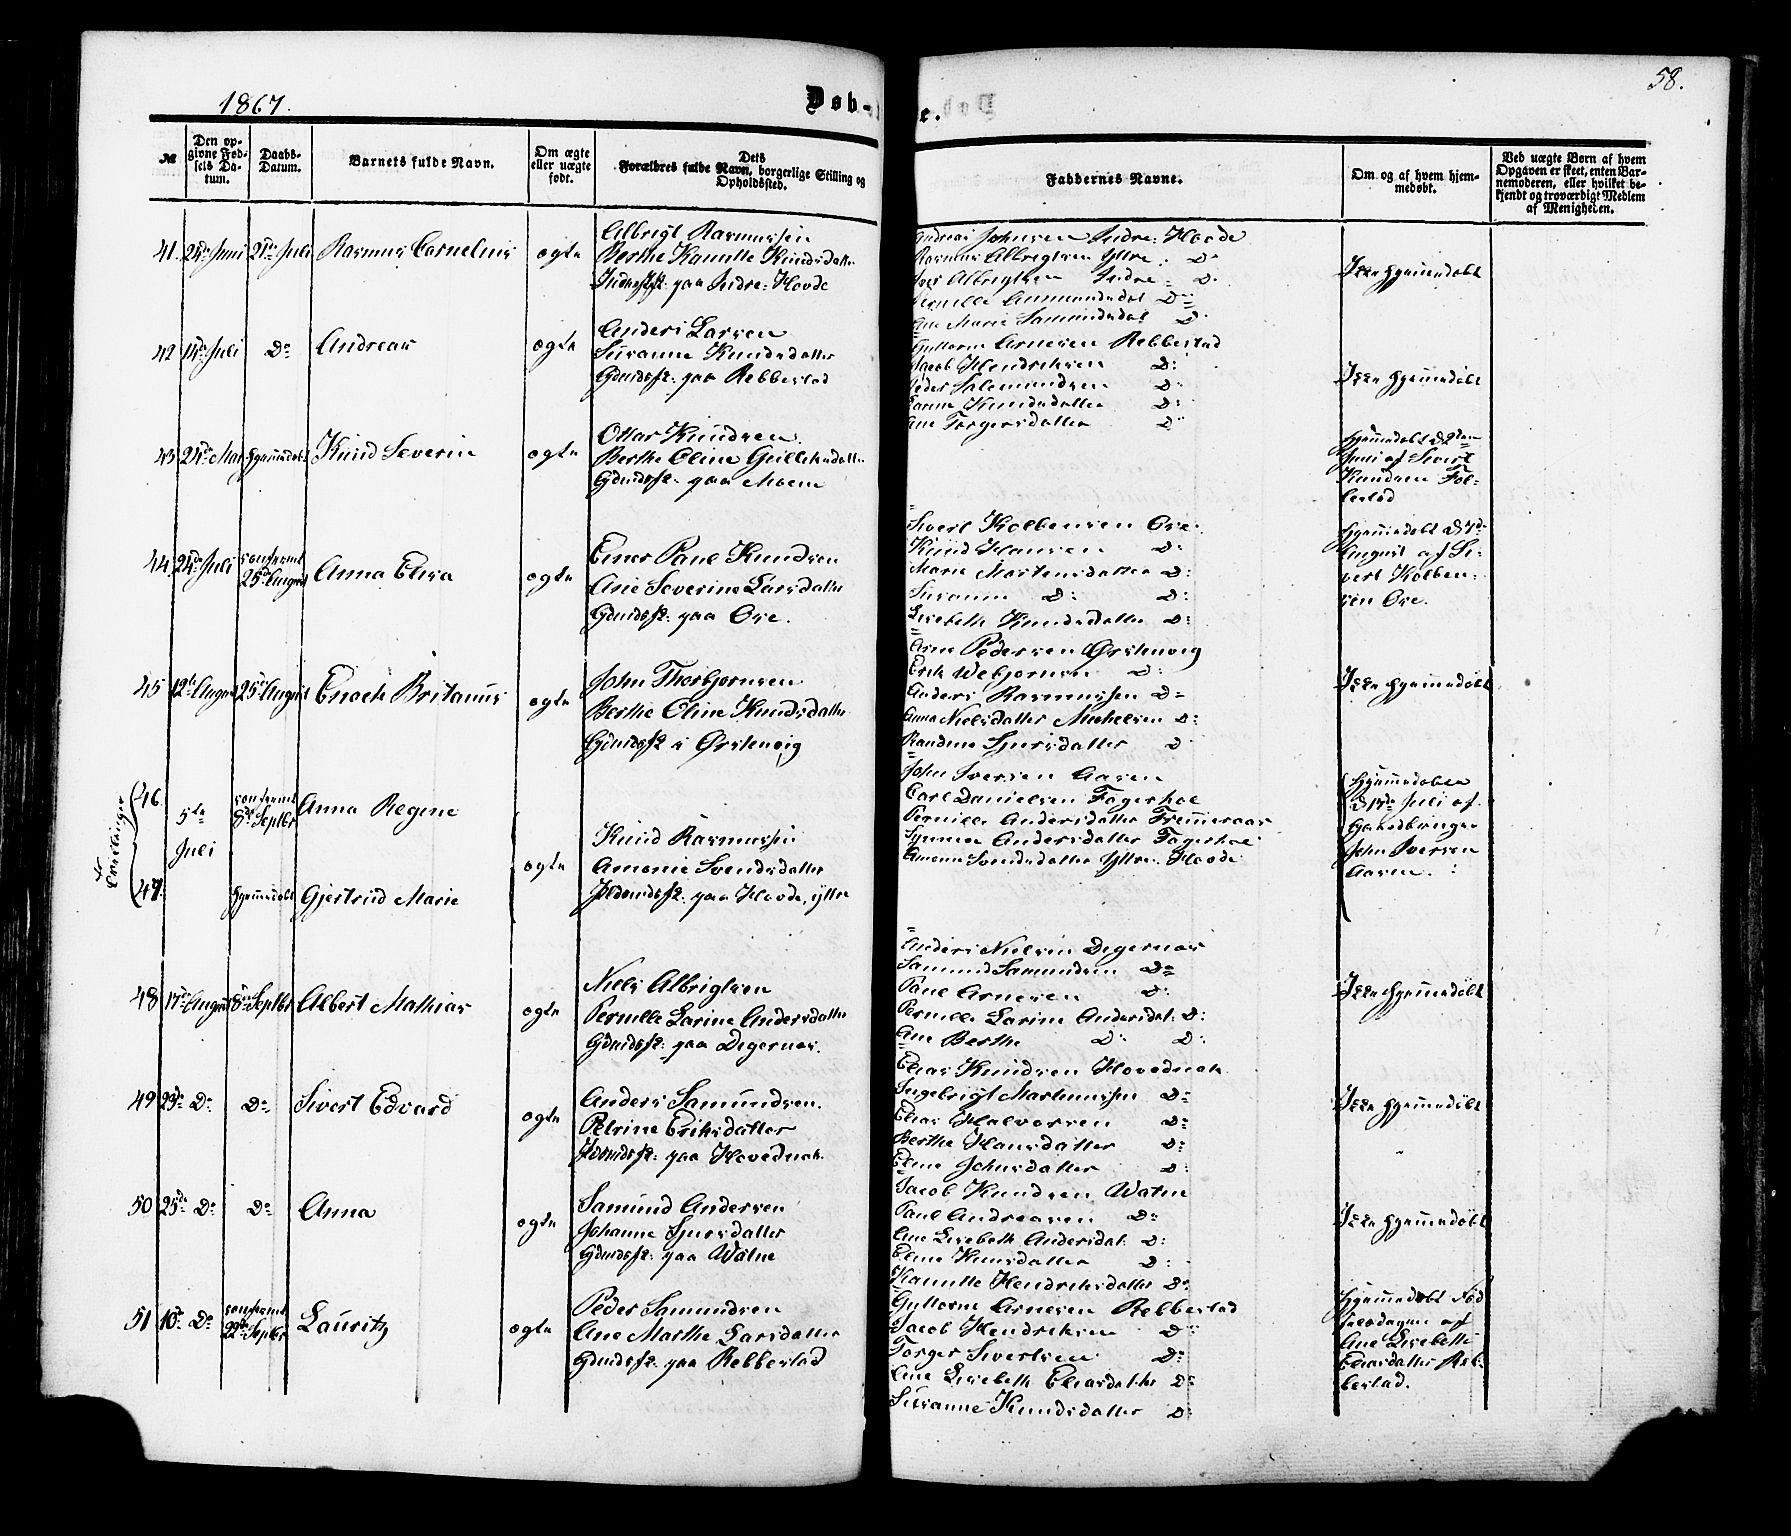 1867.
Døb-
e.
58.
№
Den op-
givne Fød-
sels Da-
tum.
Daabs-
Datum.
Barnets fulde Navn.
Om ægte
eller uægte
født.
Dets
Forældres fulde Navn, borgerlige Stilling og
Opholdssted.
Faddernes Navne.
Om og af hvem hjem-
medøbt.
Ved uægte Børn af hvem
Opgaven er skeet, enten Bar-
nemoderen, eller hvilket be-
kjendt og troværdigt Medlem
af Menigheden.
41. 24de Juni 21de Juli Rasmus Cornelius
ægte
Albrigt Rasmussen
Berthe Kanutte Knudsdatter
Indre: Hovde
Johnsen Indre: Hovde
Rasmus Albrigtsen Yttre: Do
Albrigtsen Indre: Do
Pernille Amundsdat Do
Ane Marie Samundsdat Do
Ikke hjemmedøbt
42 14de Juli Do Andreas
ægte
Anders Larsen
Susanne Knudsdatter
Gdmdsf: paa Rebbestad
Guttorm Arnesen Rebbestad
Jacob Hendriksen Do:
Peder Salemonsen Do:
Karine Knudsdatter Do:
Ane Torgersdatter Do
Ikke hjemmedøbt
43 24de Mai hjemmedøbt Knud Severin
ægte
Ottar Knudsen
Berthe Oline
Gdmdsf: paa Moene
hjemmedøbt D 2den
Juni af Sivert
Knudsen
44 24de Juli confermt 25de August Anna Elisa
ægte
Paul Knudsen
Ane Severine Larsdatter
Gdmdsf: paa Ose.
Sivert Kolbensen Ose.
Knud Hansen Do:
Marie Mortensdatter Do:
Susanne Do: Do:
Lisebeth Knudsdatter Do:
hjemmedøbt D
August af Si-
vert Kolben-
sen Ose.
45 12te August 25de August Enoch Britanus
ægte
John Thorbjørnsen
Berthe Oline Knudsdatter
Gdmdsf i Ørstenvig
Arne Pedersen Ørstenvig
Erik Webjørnsen Do:
Anders Rasmussen Do
Anna Nielsdatter Michelsen Do:
Randine Sjursdatter Do
Ikke hjemmedøbt
Tvillinger
46. 5te Juli confermt 8de Septbr Anna Regine
47. hjemmedøbt Gjertrud Marie
ægte
Knud Rasmussen
Amonie Svendsdatter
paa Hovde, yttre
John Iversen Aasen
Carl Danielsen Fagerhol
Pernille Andersdatter
Synneve Andersdatter Fagerhol
Svendsdatter Yttre: Hovde
Hjemmedøbte
Juli af
Gaardbruger
John Iversen
Aasen.
48 August 8de Septbr Albert Mathias
ægte
Niels Albrigtsen
Pernille Larine Andersdatter
Gdmdsf: paa Degernæs.
Anders Nielsen Degernæs
Samund Samundsen Do
Paul Arnesen Do:
Pernille Larine Andersdat. Do:
Ane Berthe Do: Do:
Ikke hjemmedøbt
49 23de Do: Do: Sivert Edvard
ægte
Anders Samundsen.
Petrine Eriksdatter
paa Hovednak.
Elias Knudsen Hovednak.
Ingebrigt Martinussen Do
Elias Halvorsen Do:
Berthe Hansdatter Do:
Eline Johnsdatter Do:
Ikke hjemmedøbt
50 25de Do: Do: Anna
ægte
Samund Andersen
Johanne Sjursdatter
Gdmdsf: paa Watne
Jacob Knudsen Watne
Paul Andreasen Do:
Ane Lisebeth Andersdat. Do:
Eline Knudsdatter Do:
Kanutte Hendriksdatter Do:
Ikke hjemmedøbt
51 16de Do: confermt 22de Septbr Lauritz
ægte
Peder Samundsen
Ane Marthe Larsdatter
Gdmdsf: paa Rebbestad
Guttorm Arnesen Rebbestad
Jacob Hendriksen Do:
Torger Sivertsen Do:
Ane Lisebeth Eliasdatter Do:
Susanne Knudsdatter Do:
Hjemmedøbt Fød-
selsdagen af
Ane Lisebeth
Eliasdatter Reb-
bestad.